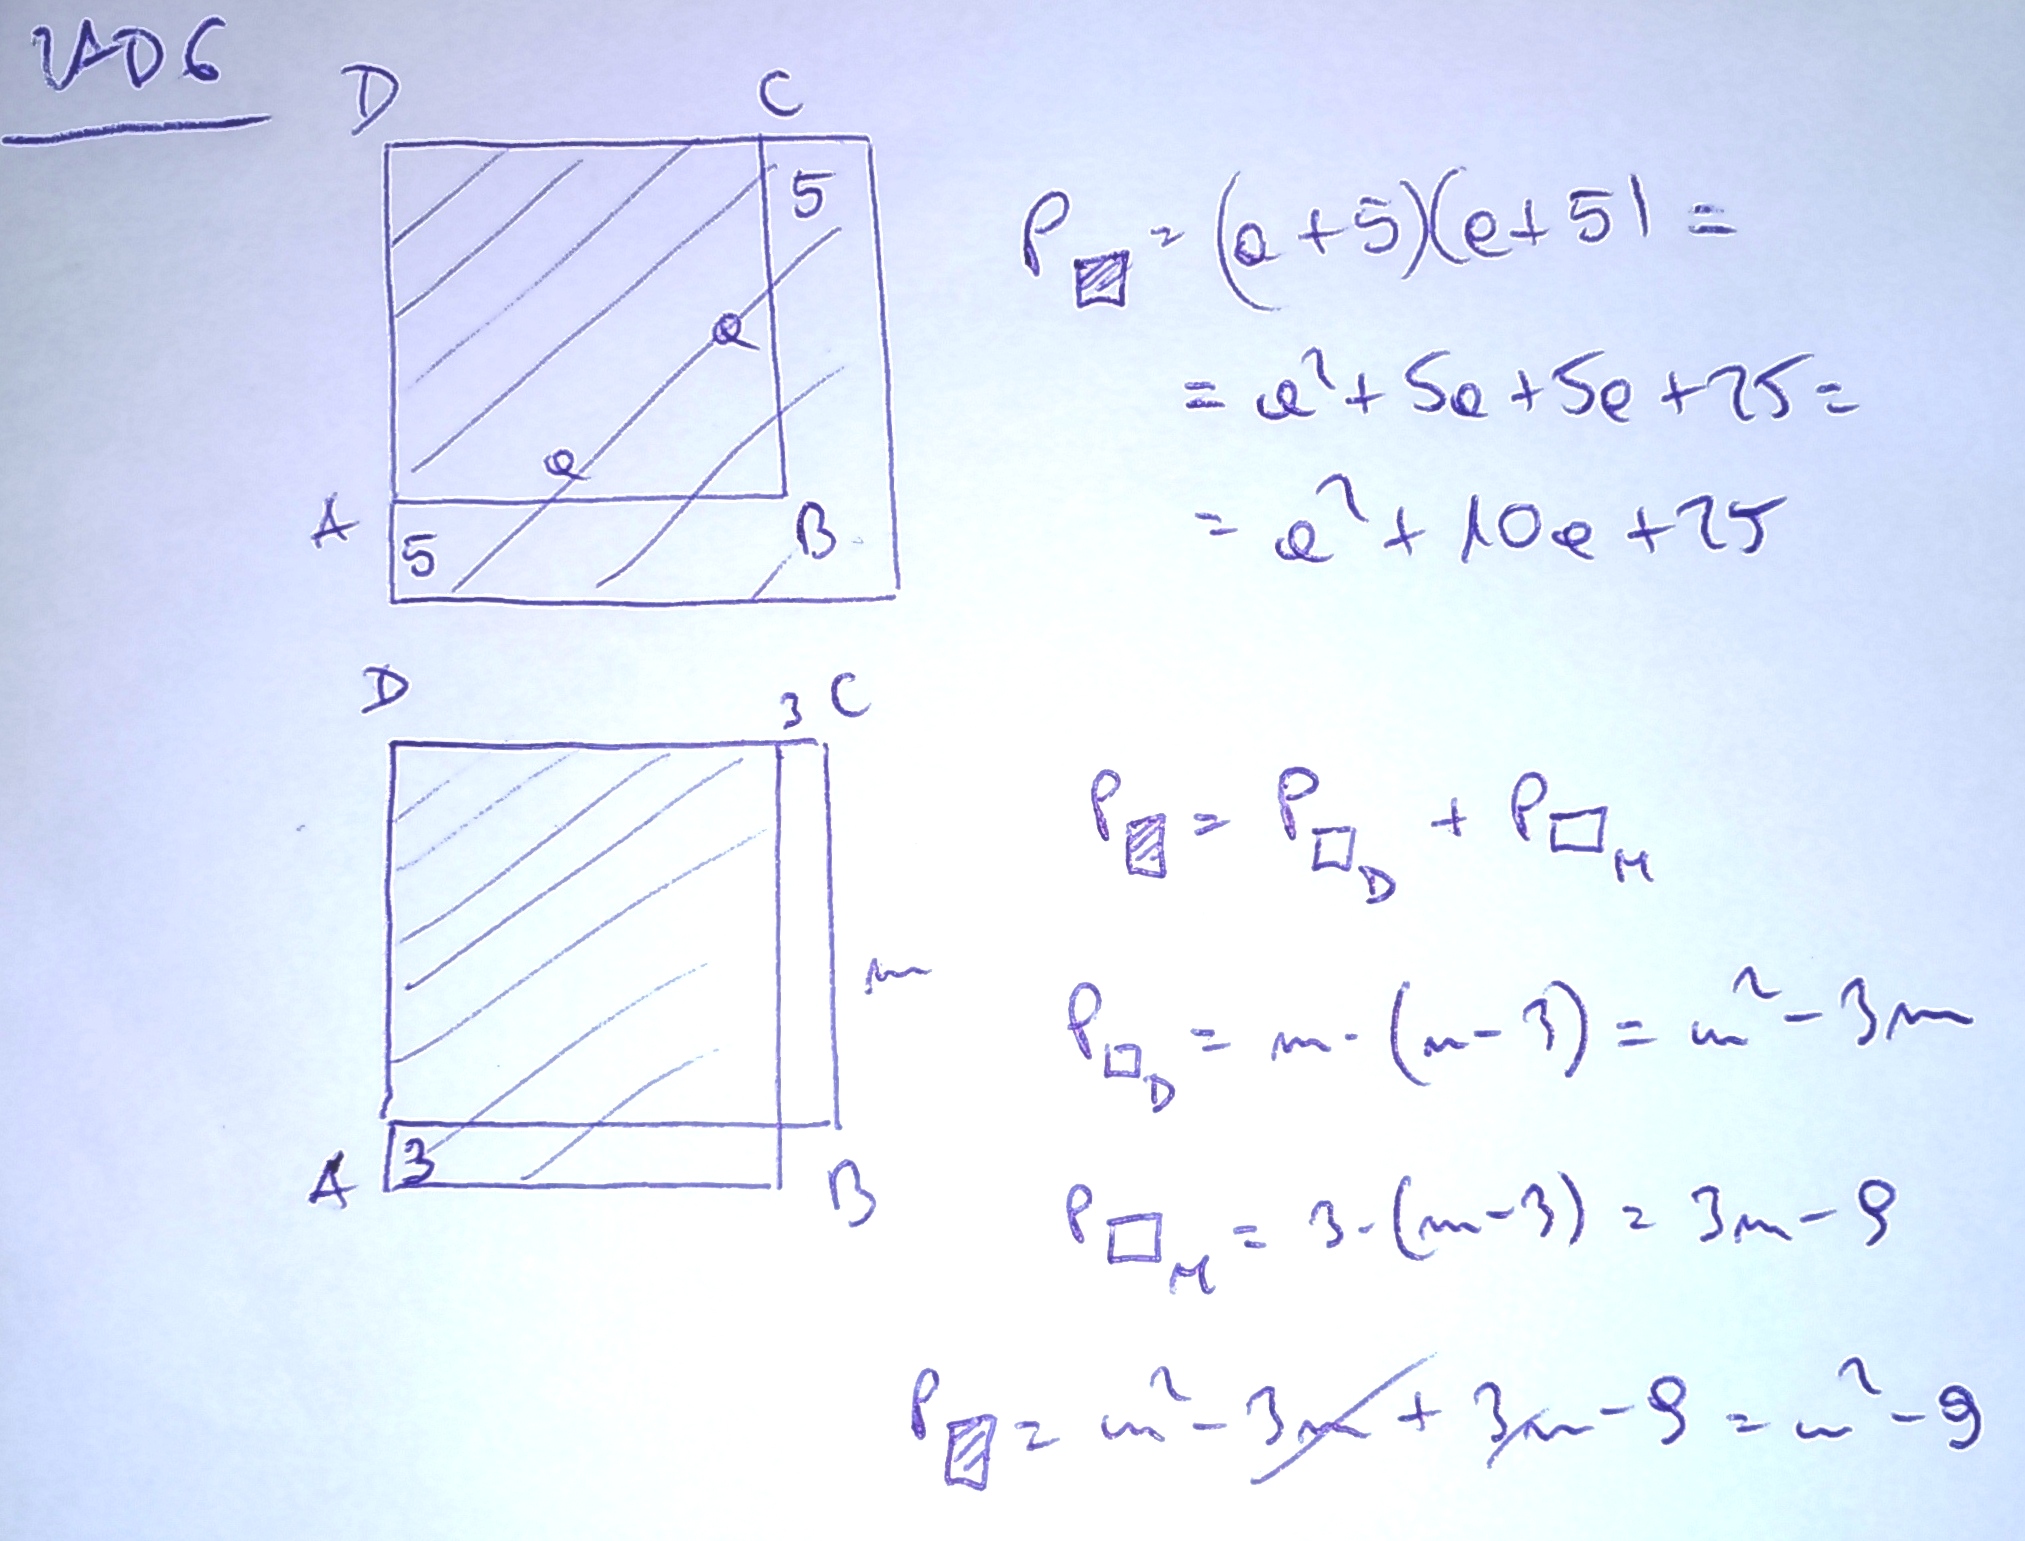 ZAD 6
D C
5
a
a
A B
5
P▨ = (a+5)(a+5) =
= a²+5a+5a+25=
= a²+10a+25
D 3 C
m
A 3 B
P▨ = P□D + P□M
P□D = m·(m-3) = m²-3m
P□M = 3·(m-3) = 3m-9
P▨ = m²-3m+3m-9 = m²-9